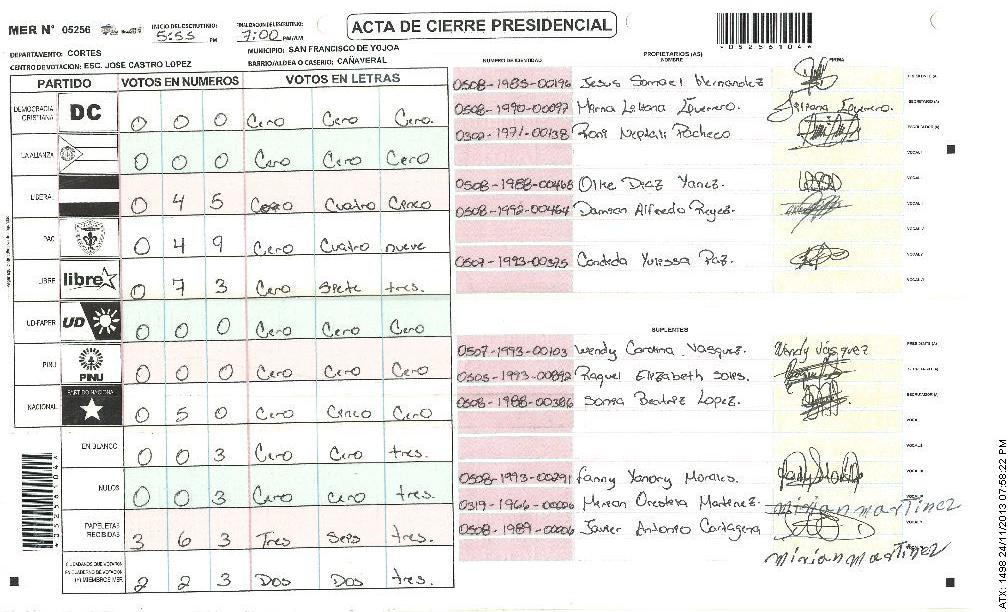 MER N° 05256
INICIO DEL ESCRUTINIO: 5:55 PM
FINALIZACION ESCRUTINIO: 7:00 PM/AM
ACTA DE CIERRE PRESIDENCIAL
DEPARTAMENTO: CORTES
MUNICIPIO: SAN FRANCISCO DE YOJOA
CENTRO DE VOTACION: ESC. JOSE CASTRO LOPEZ
BARRIO/ALDEA O CASERIO: CAÑAVERAL
PARTIDO VOTOS EN NUMEROS VOTOS EN LETRAS
DEMOCRACIA CRISTIANA DC 0 0 0 Cero Cero Cero.
LA ALIANZA 0 0 0 Cero Cero Cero
LIBERAL 0 4 5 Cero Cuatro Cinco
PAC 0 4 9 Cero Cuatro nueve
LIBRE libre 0 7 3 Cero Siete tres.
UD-FAPER UD 0 0 0 Cero Cero Cero
PINU PINU 0 0 0 Cero Cero Cero
NACIONAL PARTIDO NACIONAL 0 5 0 Cero Cinco Cero
EN BLANCO 0 0 3 Cero Cero tres.
NULOS 0 0 3 Cero cero tres
PAPELETAS RECIBIDAS 3 6 3 Tres Seis tres.
CIUDADANOS QUE VOTARON EN CUADERNO DE VOTACION (Y) MIEMBROS MER 2 2 3 Dos Dos tres.
NUMERO DE IDENTIDAD
PROPIETARIOS (AS)
NOMBRE
FIRMA
0508-1985-00196 Jesus Samael Hernandez
0508-1990-00097 Mirna Liliana Figueroa.
0302-1971-00138 Roni Neptali Pacheco
0508-1988-00468 Olke Diaz Yanez.
0508-1992-00464 Damson Alfredo Reyes.
0507-1993-00375 Candida Yulissa Paz.
SUPLENTES
0507-1993-00103 Wendy Carolina Vasquez. Wendy Vásquez
0505-1993-00892 Raquel Elizabeth Soles.
0508-1988-00386 Sonia Beatriz Lopez.
0508-1993-00291 Fanny Yanory Morales.
0319-1966-00006 Mirian Orestera Martinez. mirian martinez
0508-1989-00006 Javier Antonio Cartagena
mirian martinez
ATX: 1498 24/11/2013 07:58:22 PM